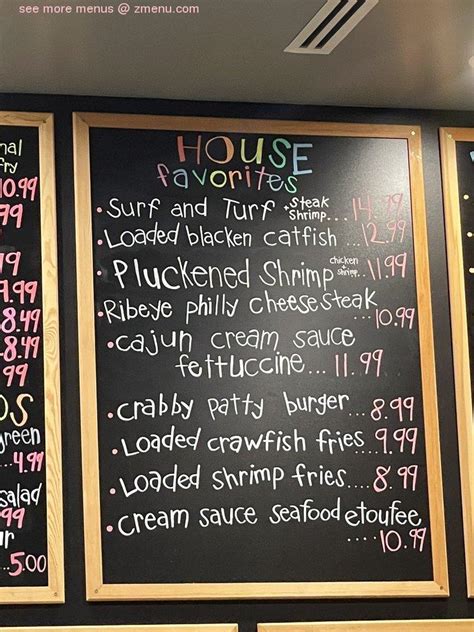 see more menus @ zmenu.com
nal
fry
10.99
99
19
9.99
8.49
8.49
99
OS
green
..4.99
salad
99
ur
..5.00
HOUSE
favorites
• Surf and Turf • Steak Shrimp... 14.99
• Loaded blacken catfish ... 12.99
• Pluckened Shrimp chicken + shrimp... 11.99
• Ribeye philly cheesesteak
...10.99
• cajun cream sauce
fettuccine... 11.99
• crabby patty burger... 8.99
• Loaded crawfish fries 9.99
• Loaded shrimp fries.... 8.99
• cream sauce seafood etoufee
....10.99